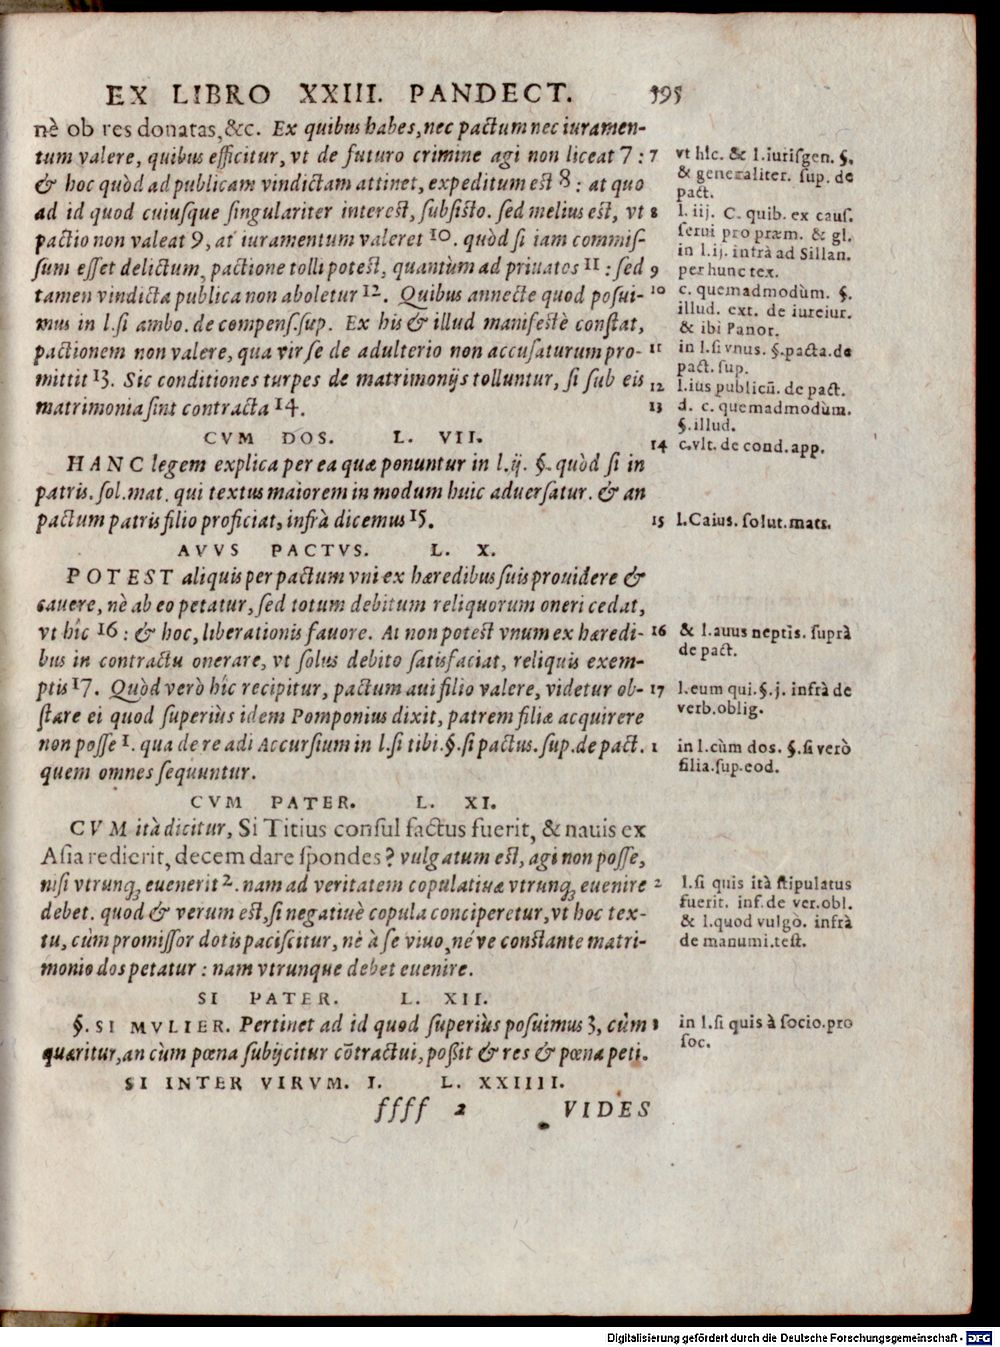 EX LIBRO XXIII. PANDECT. 595
nè ob res donatas, &c. Ex quibus habes, nec pactum nec iuramen-
tum valere, quibus efficitur, vt de futuro crimine agi non liceat 7 :
& hoc quòd ad publicam vindictam attinet, expeditum est 8 : at quo
ad id quod cuiusque singulariter interest, subsisto. sed melius est, vt
pactio non valeat 9, at iuramentum valeret 10. quòd si iam commis-
sum esset delictum, pactione tolli potest, quantùm ad priuatos 11 : sed
tamen vindicta publica non aboletur 12. Quibus annecte quod posui-
mus in l. si ambo. de compens. sup. Ex his & illud manifestè constat,
pactionem non valere, qua vir se de adulterio non accusaturum pro-
mittit 13. Sic conditiones turpes de matrimonijs tolluntur, si sub eis
matrimonia sint contracta 14.
CVM DOS. L. VII.
HANC legem explica per ea quæ ponuntur in l. ij. §. quòd si in
patris. sol. mat. qui textus maiorem in modum huic aduersatur. & an
pactum patris filio proficiat, infrà dicemus 15.
AVVS PACTVS. L. X.
POTEST aliquis per pactum vni ex hæredibus suis prouidere &
cauere, nè ab eo petatur, sed totum debitum reliquorum oneri cedat,
vt hîc 16 : & hoc, liberationis fauore. At non potest vnum ex hæredi-
bus in contractu onerare, vt solus debito satisfaciat, reliquis exem-
ptis 17. Quòd verò hîc recipitur, pactum aui filio valere, videtur ob-
stare ei quod superiùs idem Pomponius dixit, patrem filiæ acquirere
non posse 1. qua de re adi Accursium in l. si tibi. §. si pactus. sup. de pact.
quem omnes sequuntur.
CVM PATER. L. XI.
CVM ità dicitur, Si Titius consul factus fuerit, & nauis ex
Asia redierit, decem dare spondes? vulgatum est, agi non posse,
nisi vtrunq; euenerit 2. nam ad veritatem copulatiuæ vtrunq; euenire
debet. quod & verum est, si negatiuè copula conciperetur, vt hoc tex-
tu, cùm promissor dotis paciscitur, nè à se viuo, néve constante matri-
monio dos petatur : nam vtrunque debet euenire.
SI PATER. L. XII.
§. SI MVLIER. Pertinet ad id quod superiùs posuimus 3, cùm
quæritur, an cùm pœna subijcitur cōtractui, poßit & res & pœna peti.
SI INTER VIRVM. I. L. XXIIII.
ffff 2 VIDES
7 vt hîc. & l. iurisgen. §.
& generaliter. sup. de
pact.
8 l. iij. C. quib. ex caus.
serui pro præm. & gl.
in l. ij. infrà ad Sillan.
9 per hunc tex.
10 c. quemadmodùm. §.
illud. ext. de iureiur.
& ibi Panor.
11 in l. si vnus. §. pacta. de
pact. sup.
12 l. ius publicū. de pact.
13 d. c. quemadmodùm.
§. illud.
14 c. vlt. de cond. app.
15 l. Caius. solut. matr.
16 & l. auus neptis. suprà
de pact.
17 l. eum qui. §. j. infrà de
verb. oblig.
1 in l. cùm dos. §. si verò
filia. sup. eod.
2 l. si quis ità stipulatus
fuerit. inf. de ver. obl.
& l. quod vulgò. infrà
de manumi. test.
3 in l. si quis à socio. pro
soc.
Digitalisierung gefördert durch die Deutsche Forschungsgemeinschaft - DFG